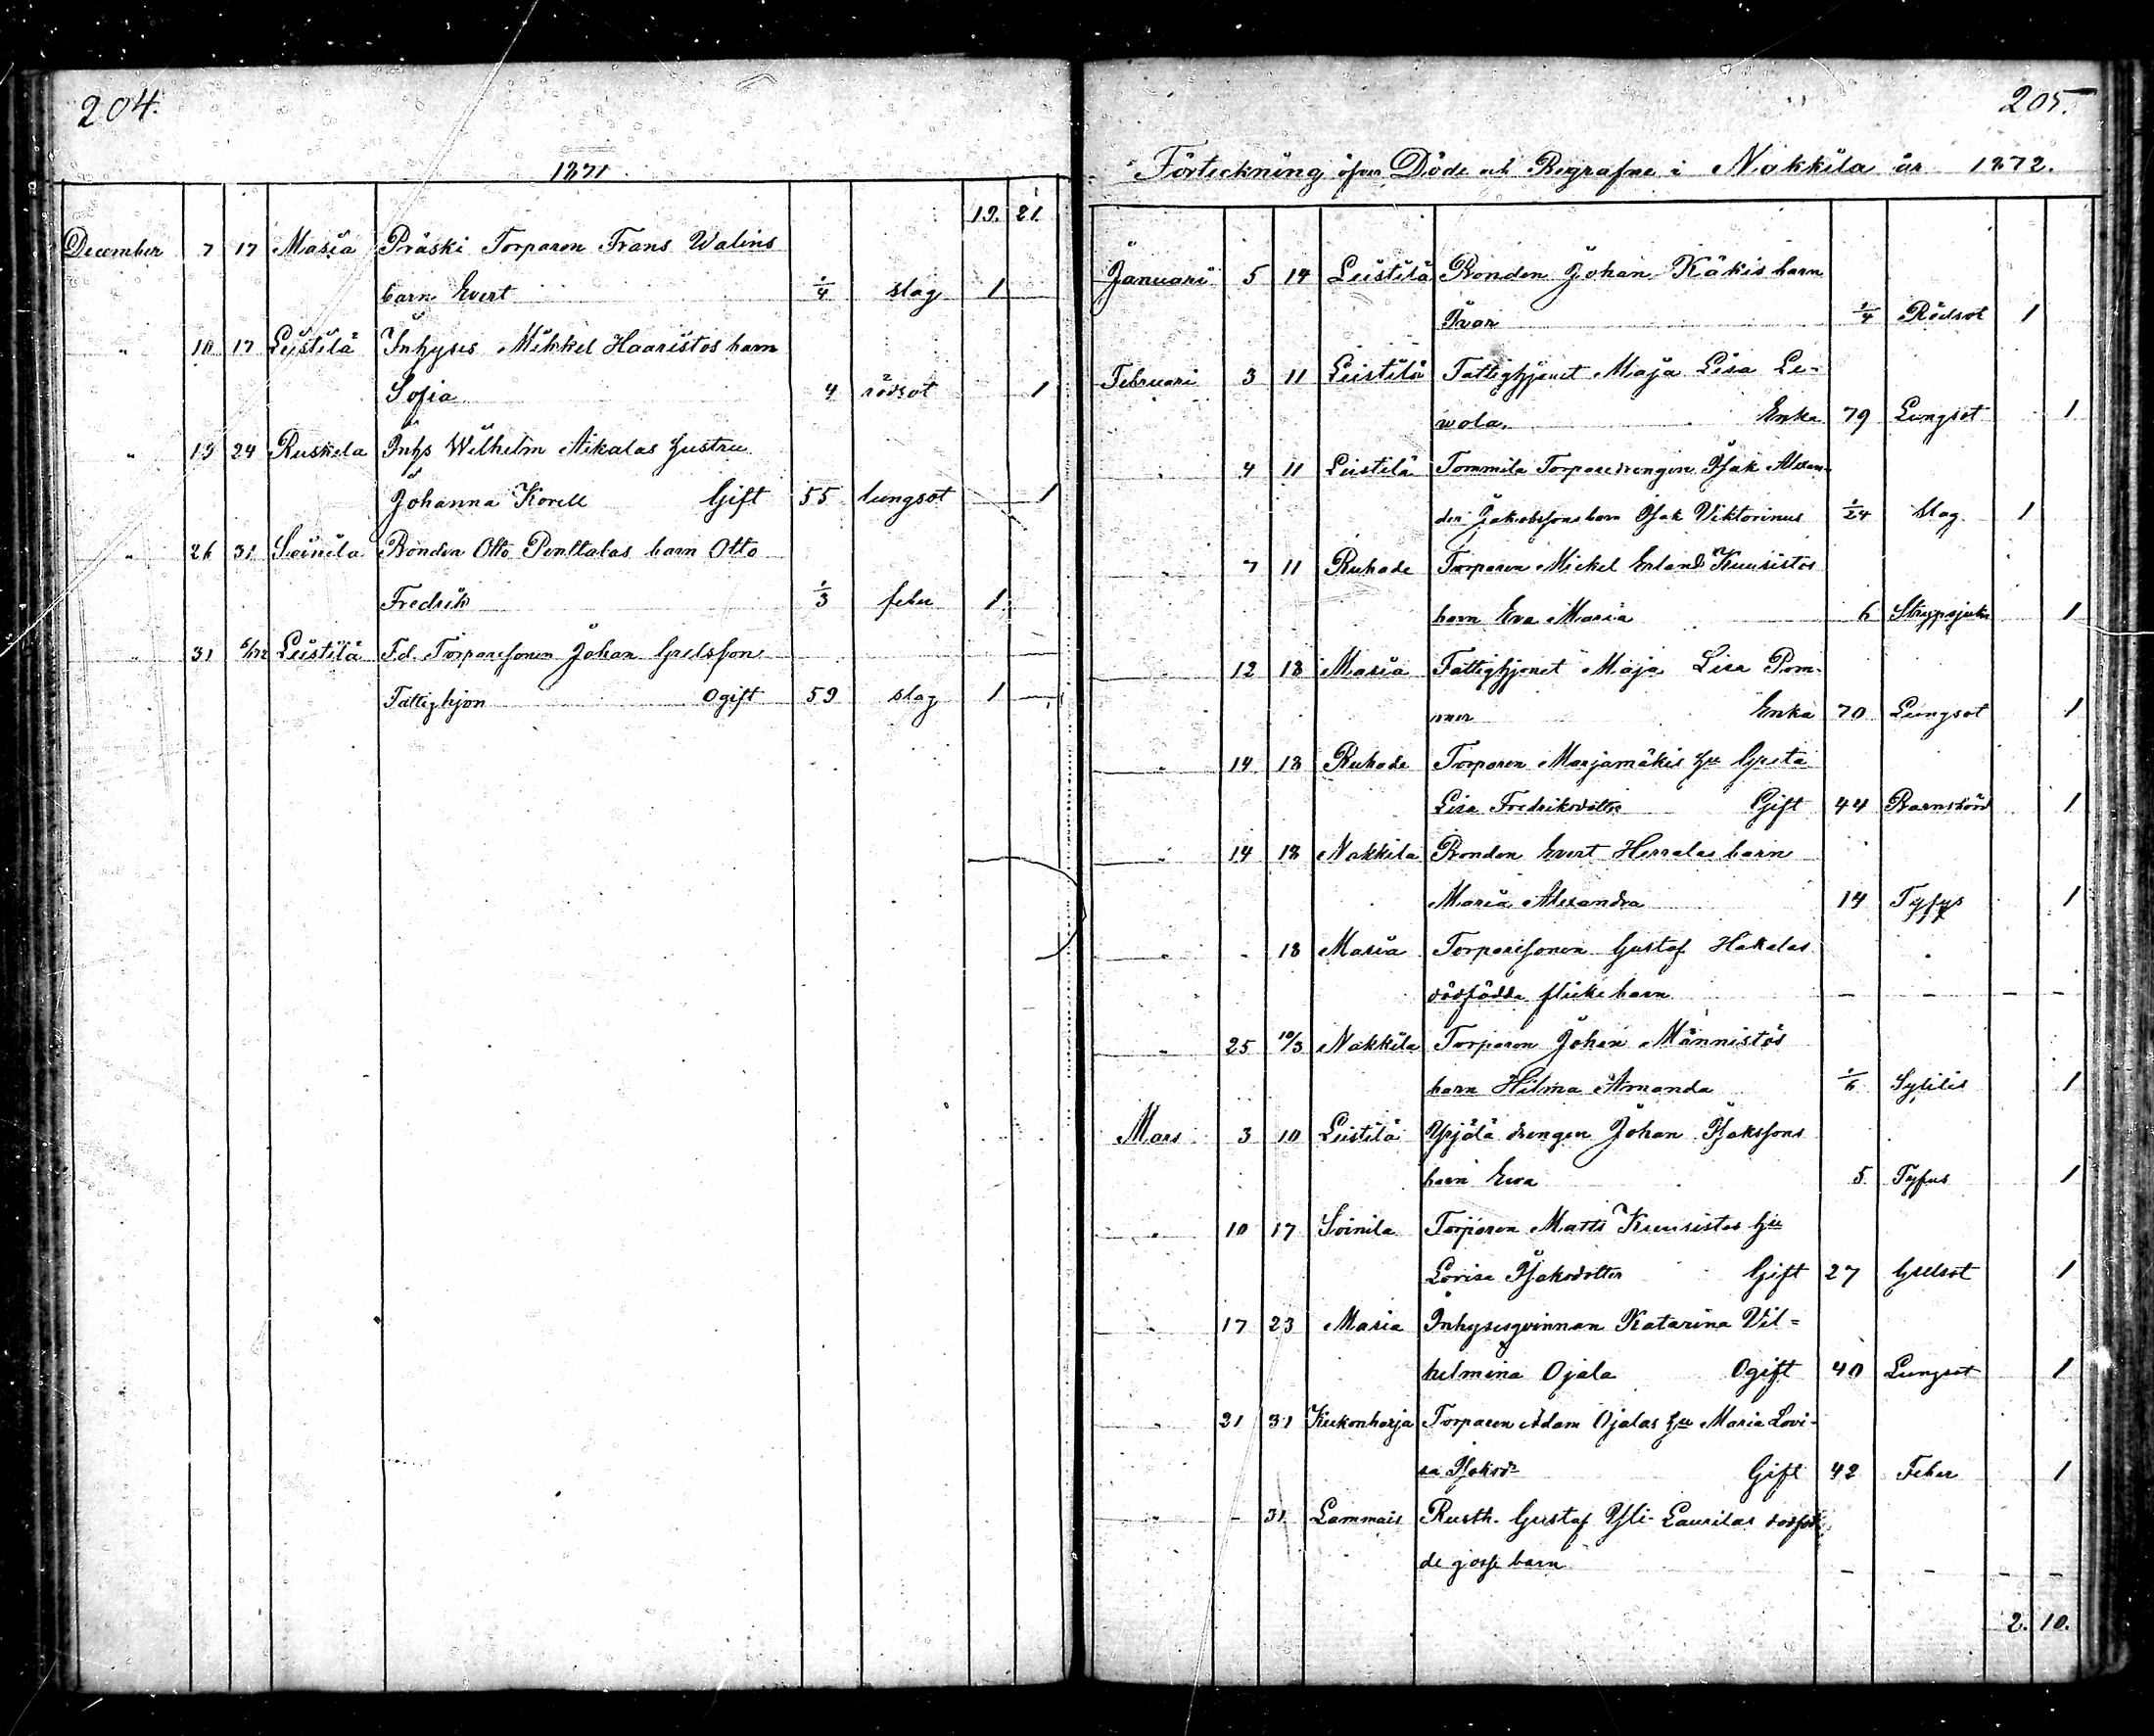 204.
1871
19. 21.
December 7 17 Masia Präski Torparen Frans Walins
barn Evert 1/4 slag 1
" 10 17 Leistilä Inhyses Mikkel Haaristos barn
Sofia 4 rödsot 1
" 19 24 Ruskela Inhs Wilhelm Aikalas hustru
Johanna Korell Gift 55 lungsot 1
" 26 31 Soinila Bonden Otto Penttalas barn Otto
Fredrik 1/3 feber 1
" 31 6/1 72 Leistilä F.d. Torparesonen Johan Grelsson
Fattighjon Ogift 59 slag 1
205.
Förteckning öfver Döde och Begrafne i Nakkila år 1872.
Januari 5 14 Leistilä Bonden Johan Käkis barn
Ivar 1/4 Rödsot 1
Februari 3 11 Leistilä Fattighjonet Maja Lisa Le-
wola. Enka 79 Lungsot 1
" 4 11 Leistilä Tommila Torparedrengen Isak Alexan-
der Jakobssons barn Isak Viktorinus 1/24 slag 1
" 7 11 Ruhade Torparen Mickel Erland Kuusistos
barn Eva Maria 6 Strypsjuka 1
" 12 18 Masia Fattighjonet Maja Lisa Pom-
mer Enka 70 Lungsot 1
" 14 18 Ruhade Torparen Marjamäkis hu Greta
Lisa Fredriksdotter Gift 44 Barnsbörd 1
" 14 18 Nakkila Bonden Evert Herralas barn
Maria Alexandra 14 Tyfus 1
" - 18 Masia Torparesonen Gustaf Hakalas
dödfödda flicke barn - - - -
" 25 10/3 Nakkila Torparen Johan Männistös
barn Hilma Amanda 1/6 Syfilis 1
Mars 3 10 Leistilä Yrjälä drengen Johan Isakssons
barn Eva 5 Tyfus 1
" 10 17 Soinila Torparen Matts Kuusistos hu
Lovisa Isaksdotter Gift 27 Gulsot 1
" 17 23 Masia Inhysesqvinnan Katarina Vil=
helmina Ojala Ogift 40 Lungsot 1
" 21 31 Kukonharja Torparen Adam Ojalas hu Maria Lovi-
sa Isaksdr Gift 42 Feber 1
" - 31 Lammais Rusth. Gustaf Yli-Laurilas dödföd
de gosse barn - - - -
2. 10.